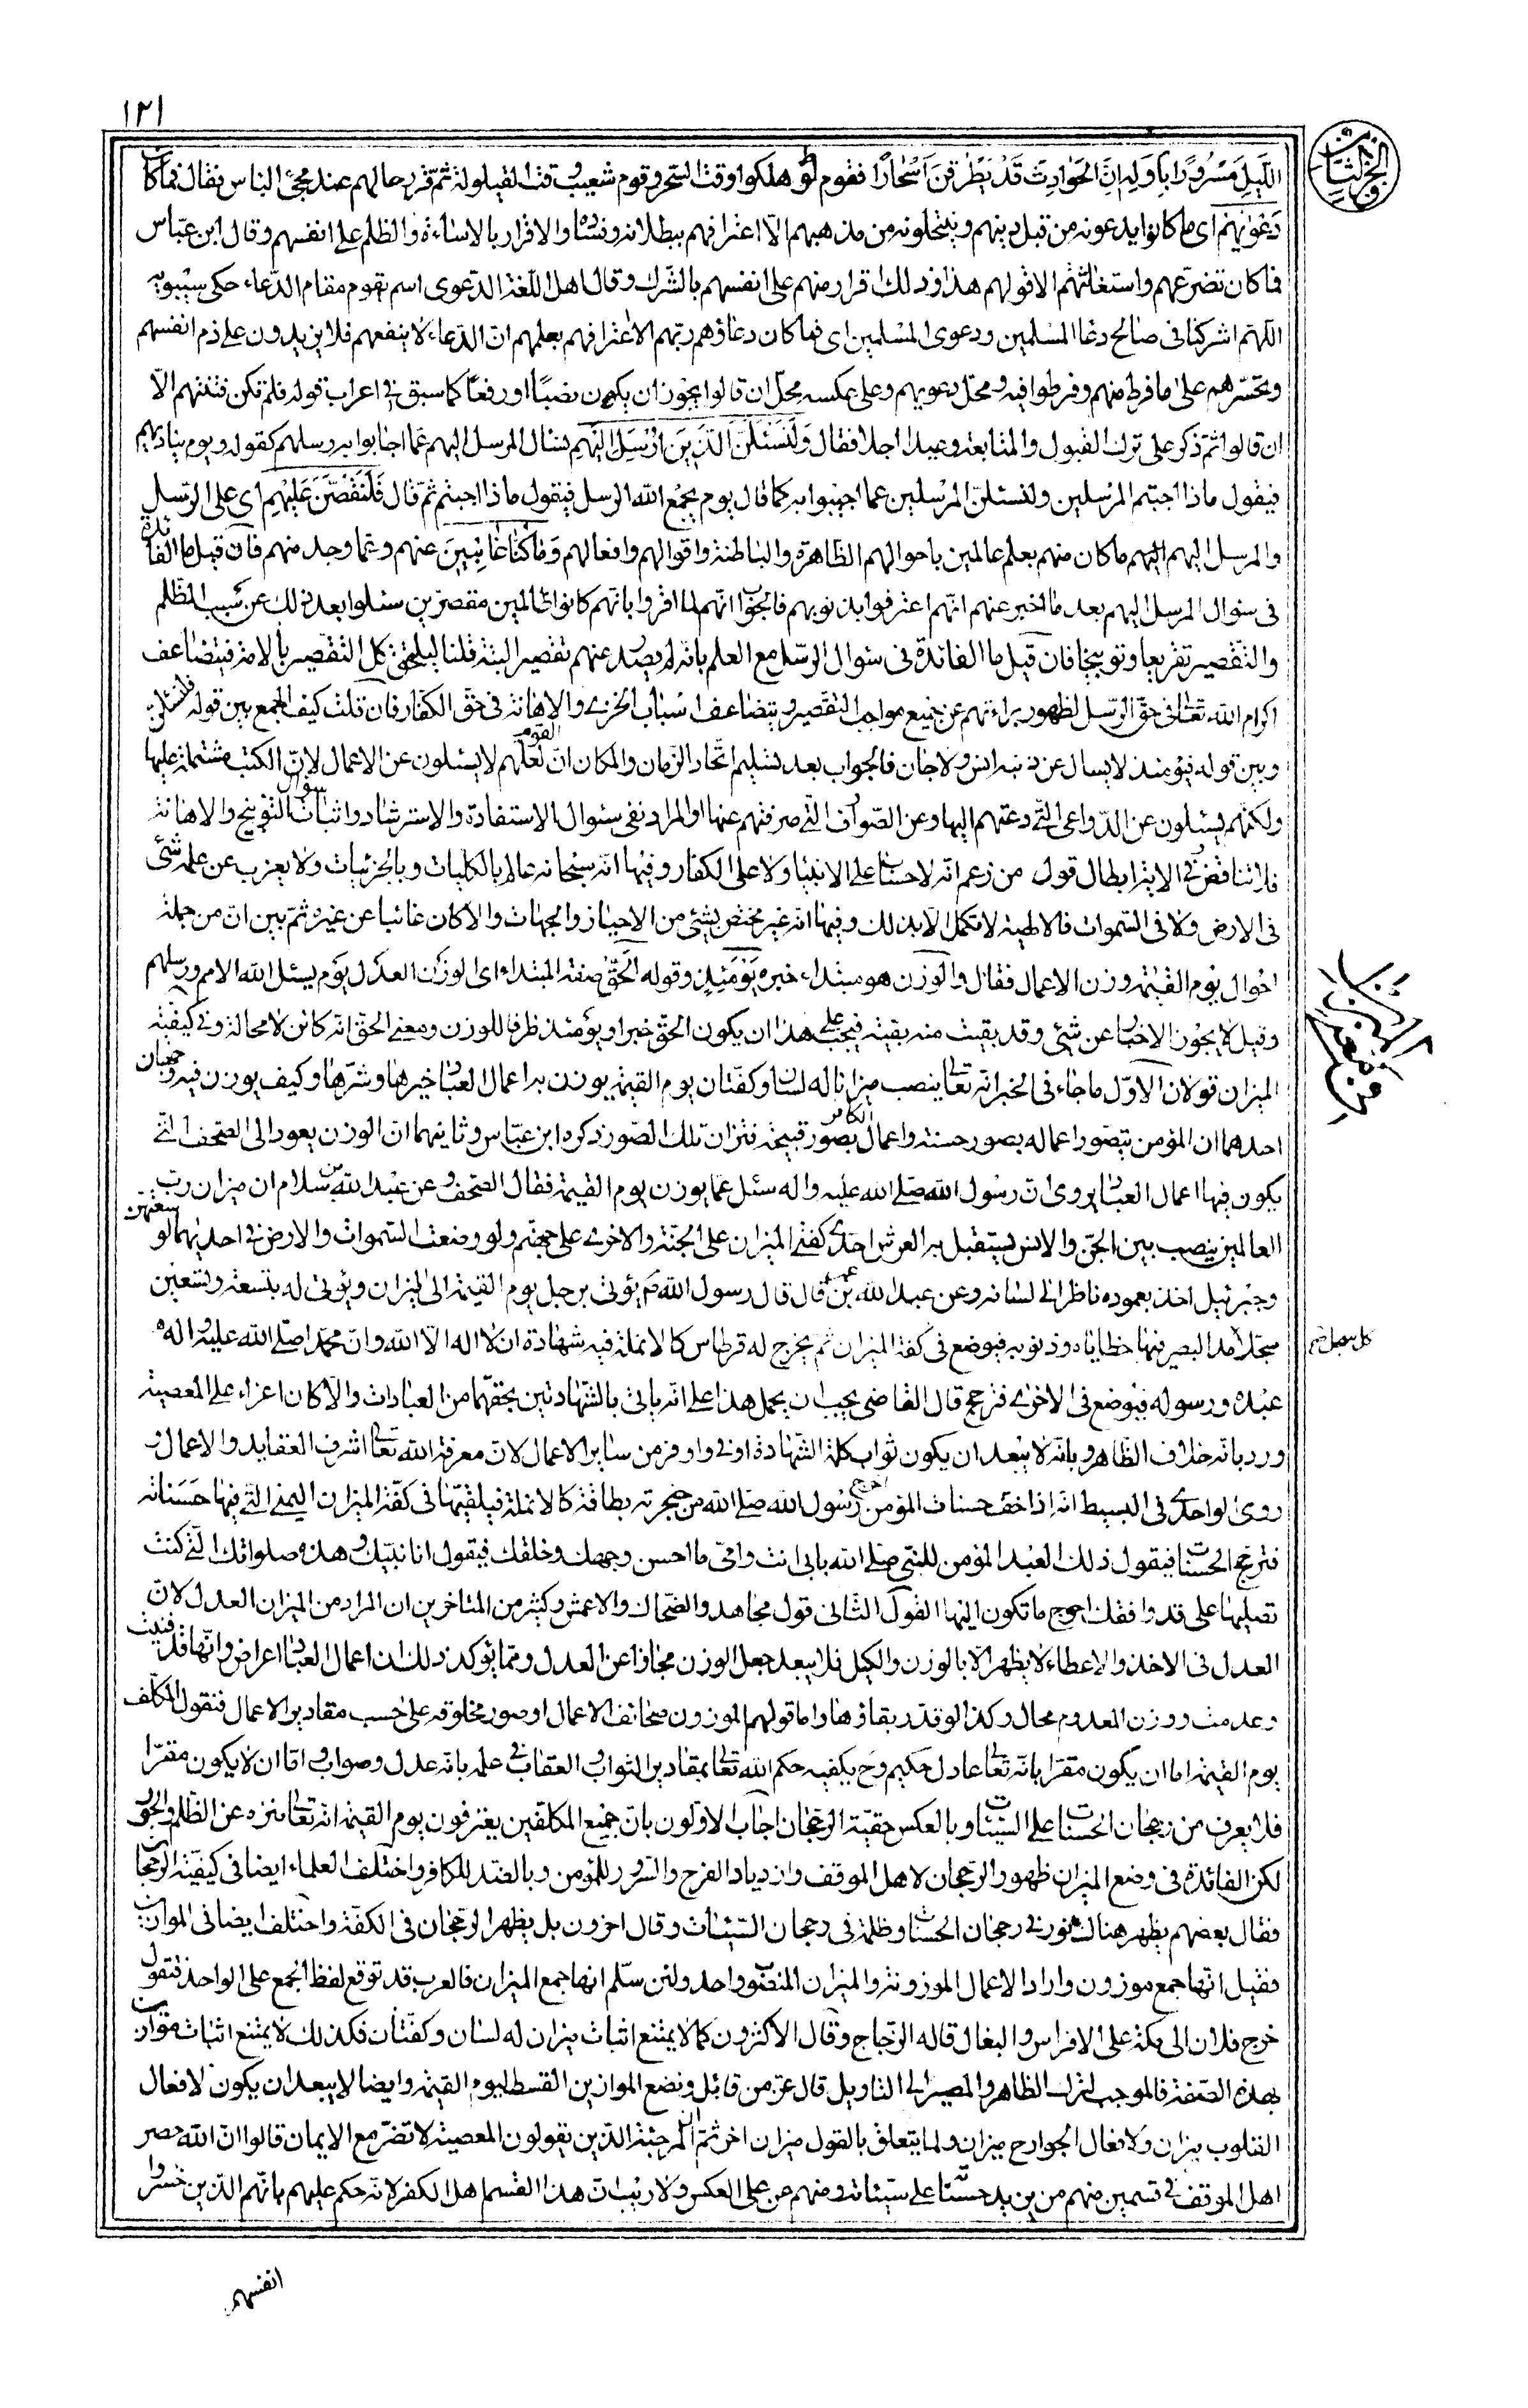 ١٢١
الجزء الثامن
الليل مسرورا باوله ان الحوادث قد يطرقن اسحارا فقوم لوط هلكوا وقت السحر وقوم شعيب وقت القيلولة ثم قرر حالهم عند مجئ الباس فقال فما كان
دعويهم اى ما كانوا يدعونه من قبل دينهم وينتحلونه من مذهبهم الا اعترافهم ببطلانه وفساده والاقرار بالاساءة والظلم على انفسهم وقال ابن عباس
فما كان تضرعهم واستغاثتهم الا قولهم هذا وذلك اقرار منهم على انفسهم بالشرك وقال اهل اللغة الدعوى اسم يقوم مقام الدعاء حكى سيبويه
اللهم اشركنا فى صالح دعا المسلمين ودعوى المسلمين اى فما كان دعاؤهم ربهم الا اعترافهم بعلمهم ان الدعاء لا ينفعهم فلا يزيدون على ذم انفسهم
وتحسرهم على ما فرط منهم وفرطوا فيه ومحل دعويهم وعلى عكسه محل ان قالوا يجوز ان يكون نصبا او رفعا كما سبق فى اعراب قوله فلم تكن فتنتهم الا
ان قالوا ثم ذكر على ترك القبول والمتابعة وعيدا اجلا فقال ولنسئلن الذين ارسل اليهم يسئال المرسل اليهم عما اجابوا به رسلهم كقوله ويوم يناديهم
فيقول ماذا اجبتم المرسلين ولنسئلن المرسلين عما اجيبوا به كما قال يوم يجمع الله الرسل فيقول ماذا اجبتم ثم قال فلنقصن عليهم اى على الرسل
والمرسل اليهم ما كان منهم بعلم عالمين باحوالهم الظاهرة والباطنة واقوالهم وافعالهم وما كنا غائبين عنهم وعما وجد منهم فان قيل ما الفائدة
فى سئوال المرسل اليهم بعد ما اخبر عنهم انهم اعترفوا بذنوبهم فالجواب انهم لما اقروا بانهم كانوا ظالمين مقصرين سئلوا بعد ذلك عن سبب الظلم
والتقصير تقريعا وتوبيخا فان قيل ما الفائدة فى سئوال الرسل مع العلم بانه لم يصدر عنهم تقصير البتة قلنا ليلحق كل التقصير بالامة فيتضاعف
اكرام الله تعالى فى حق الرسل لظهور براءتهم عن جميع مواجب التقصير ويتضاعف اسباب الخزى والاهانة فى حق الكفار فان قلت كيف الجمع بين قوله فلنسئلن
وبين قوله فيومئذ لا يسال عن ذنبه انس ولا جان فالجواب بعد تسليم اتحاد الزمان والمكان ان القوم لعلهم لا يسئلون عن الاعمال لان الكتب مشتملة عليها
ولكنهم يسئلون عن الدواعى التى دعتهم اليها وعن الصوارف التى صرفتهم عنها او المراد نفى سئوال الاستفادة والاسترشاد واثبات سؤال التوبيخ والاهانة
فلا تناقض وفى الاية ابطال قول من زعم انه لا حساب على الانبياء ولا على الكفار وفيها انه سبحانه عالم بالكليات وبالجزئيات ولا يعزب عن علمه شئ
فى الارض ولا فى السموات فالالهية لا تكمل الا بذلك وفيها انه غير مختص بشئ من الاحياز والجهات والا كان غائبا عن غيره ثم بين ان من جملة
احوال يوم القيمة وزن الاعمال فقال والوزن هو مبتداء خبره يومئذ وقوله الحق صفة المبتداء اى الوزن العدل يوم يسئل الله الامم ورسلهم
وقيل لا يجوز الاخبار عن شئ وقد بقيت منه بقية فيجب على هذا ان يكون الحق خبرا ويومئذ ظرفا للوزن ومعنى الحق انه كائن لا محالة وفى كيفية
الميزان قولان الاول ما جاء فى الخبر انه تعالى ينصب ميزانا له لسان وكفتان يوم القيمة يوزن به اعمال العباد خيرها وشرها وكيف يوزن فيه وجهان
احدهما ان المؤمن يتصور اعماله بصور حسنة واعمال الكافر بصور قبيحة فتزان تلك الصور ذكره ابن عباس وثانيهما ان الوزن يعود الى الصحف التى
يكون فيها اعمال العباد يروى ان رسول الله صلى الله عليه واله سئل عما يوزن يوم القيمة فقال الصحف وعن عبد الله بن سلام ان ميزان رب
العالمين ينصب بين الجن والانس يستقبل به العرش احدى كفتى الميزان على الجنة والاخرى على جهنم ولو وضعت السموات والارض فى احديهما لوسعتهن
وجبرئيل اخذ بعموده ناظر الى لسانه وعن عبد الله بن عمر قال قال رسول الله ص يؤتى برجل يوم القيمة الى الميزان ويؤتى له بتسعة وتسعين
سجلا كل سجل منها مد البصر فيها خطاياه وذنوبه فيوضع فى كفة الميزان ثم يخرج له قرطاس كالانملة فيه شهادة ان لا اله الا الله وان محمدا صلى الله عليه واله
عبده ورسوله فيوضع فى الاخرى فترجح قال القاضى يجب ان يحمل هذا على انه ياتى بالشهادتين بحقهما من العبادات والا كان اغراء على المعصية
ورد بانه خلاف الظاهر وبانه لا يبعد ان يكون ثواب كلمة الشهادة اوفى واوفر من ساير الاعمال لان معرفة الله تعالى اشرف العقايد والاعمال و
روى الواحدى فى البسيط انه اذا خف حسنات المؤمن اخرج رسول الله صلى الله من حجرته بطاقة كالانملة فيلقيها فى كفة الميزان اليمنى التى فيها حسناته
فترجح الحسنات فيقول ذلك العبد المؤمن للنبى صلى الله بابى انت وامى ما احسن وجهك وخلقك فيقول انا نبيك وهذه صلواتك التى كنت
تصليها على قد وافقتك احوج ما تكون اليها القول الثانى قول مجاهد والضحاك والاعمش وكثير من المتاخرين ان المراد من الميزان العدل لان
العدل فى الاخذ والاعطاء لا يظهر الا بالوزن والكيل فلا يبعد جعل الوزن مجازا عن العدل ومما يؤكد ذلك ان اعمال العباد اعراض وانها قد فنيت
وعدمت ووزن المعدوم محال وكذا لو قدر بقاؤها واما قولهم الموزون صحائف الاعمال او صور مخلوقة على حسب مقادير الاعمال فنقول المكلف
يوم القيمة اما ان يكون مقرا بانه تعالى عادل حكيم وح يكفيه حكم الله تعالى بمقادير الثواب والعقاب فى علمه بانه عدل وصواب واما ان لا يكون مقرا
فلا يعرف من رجحان الحسنات على السيئات وبالعكس حقيقة الرجحان اجاب الاولون بان جميع المكلفين يعترفون يوم القيمة انه تعالى منزه عن الظلم والجور
لكن الفائدة فى وضع الميزان ظهور الرجحان لاهل الموقف وازدياد الفرح والسرور للمؤمن وبالضد للكافر واختلف العلماء ايضا فى كيفية الرجحان
فقال بعضهم يظهر هناك نور فى رجحان الحسنات وظلمة فى رجحان السيئات وقال اخرون بل يظهر الرجحان فى الكفة واختلف ايضا فى الموازين
فقيل انها جمع موزون واراد الاعمال الموزونة والميزان المنصوب واحد ولئن سلم انها جمع الميزان فالعرب قد توقع لفظ الجمع على الواحد فتقول
خرج فلان الى مكة على الافراس والبغال قاله الزجاج وقال الاكثرون كما لا يمتنع اثبات ميزان له لسان وكفتان فكذلك لا يمتنع اثبات موازين
بهذه الصفة فالموجب لترك الظاهر والمصير الى التاويل قال عز من قائل ونضع الموازين القسط ليوم القيمة وايضا لا يبعد ان يكون لافعال
القلوب ميزان ولافعال الجوارح ميزان ولما يتعلق بالقول ميزان اخر ثم المرجئة الذين يقولون المعصية لا تضر مع الايمان قالوا ان الله حصر
اهل الموقف فى قسمين منهم من يزيد حسناته على سيئاته ومنهم من على العكس ولا ريب ان هذا القسم اهل الكفر لانه حكم عليهم بانهم الذين خسروا
انفسهم